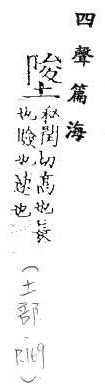 四聲篇海
私閏切高也長
也險也速也
(土部 P.169)